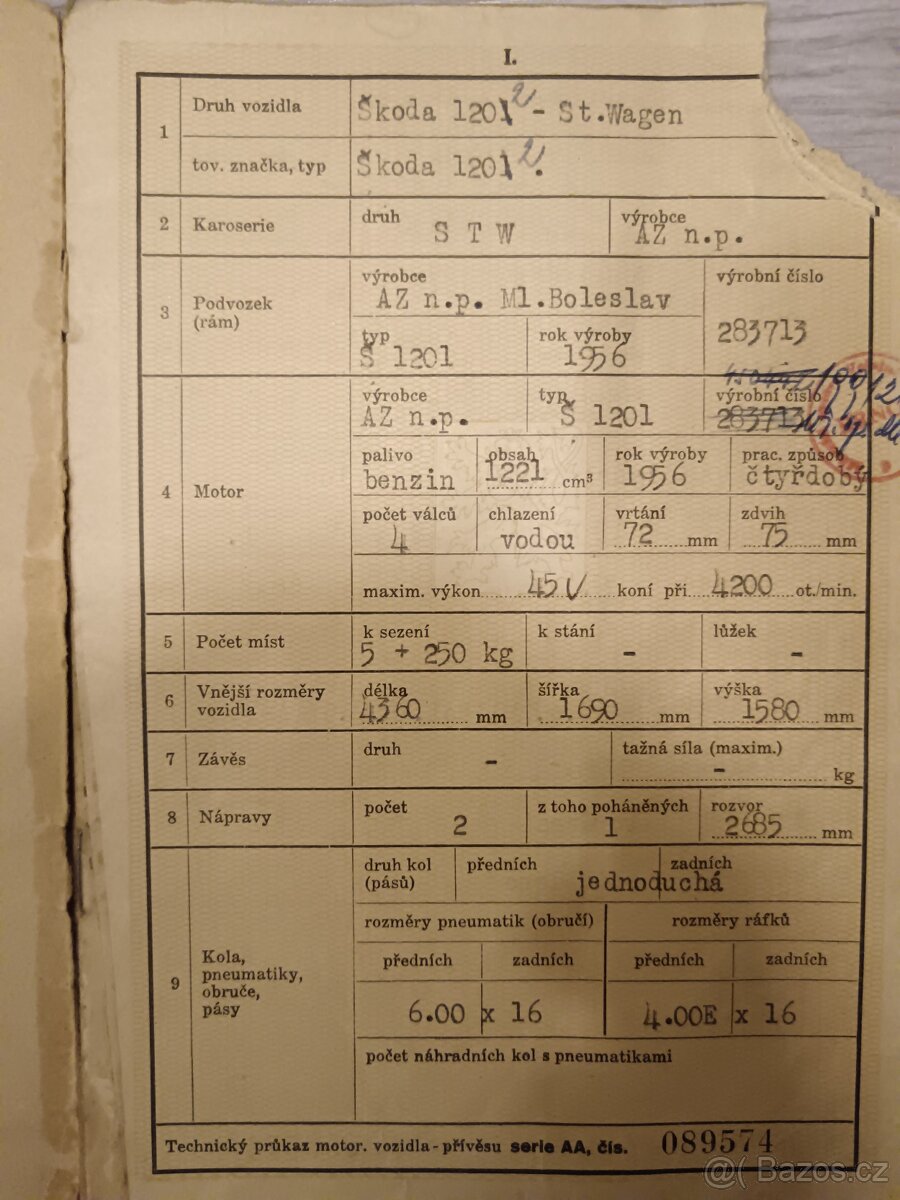 I.
1 Druh vozidla Škoda 1202 - St.Wagen
tov. značka, typ Škoda 1202.
2 Karoserie druh STW výrobce AZ n.p.
3 Podvozek (rám) výrobce AZ n.p. Ml.Boleslav výrobní číslo 283713
typ Š 1201 rok výroby 1956
4 Motor výrobce AZ n.p. typ Š 1201 výrobní číslo 283713
palivo benzin obsah 1221 cm³ rok výroby 1956 prac. způsob čtyřdobý
počet válců 4 chlazení vodou vrtání 72 mm zdvih 75 mm
maxim. výkon 45 koní při 4200 ot./min.
5 Počet míst k sezení 5 + 250 kg k stání - lůžek -
6 Vnější rozměry vozidla délka 4360 mm šířka 1690 mm výška 1580 mm
7 Závěs druh - tažná síla (maxim.) - kg
8 Nápravy počet 2 z toho poháněných 1 rozvor 2685 mm
9 Kola, pneumatiky, obruče, pásy druh kol (pásů) předních zadních jednoduchá
rozměry pneumatik (obručí) rozměry ráfků
předních zadních předních zadních
6.00 x 16 4.00E x 16
počet náhradních kol s pneumatikami
Technický průkaz motor. vozidla - přívěsu serie AA, čís. 089574
@( Bazos.cz